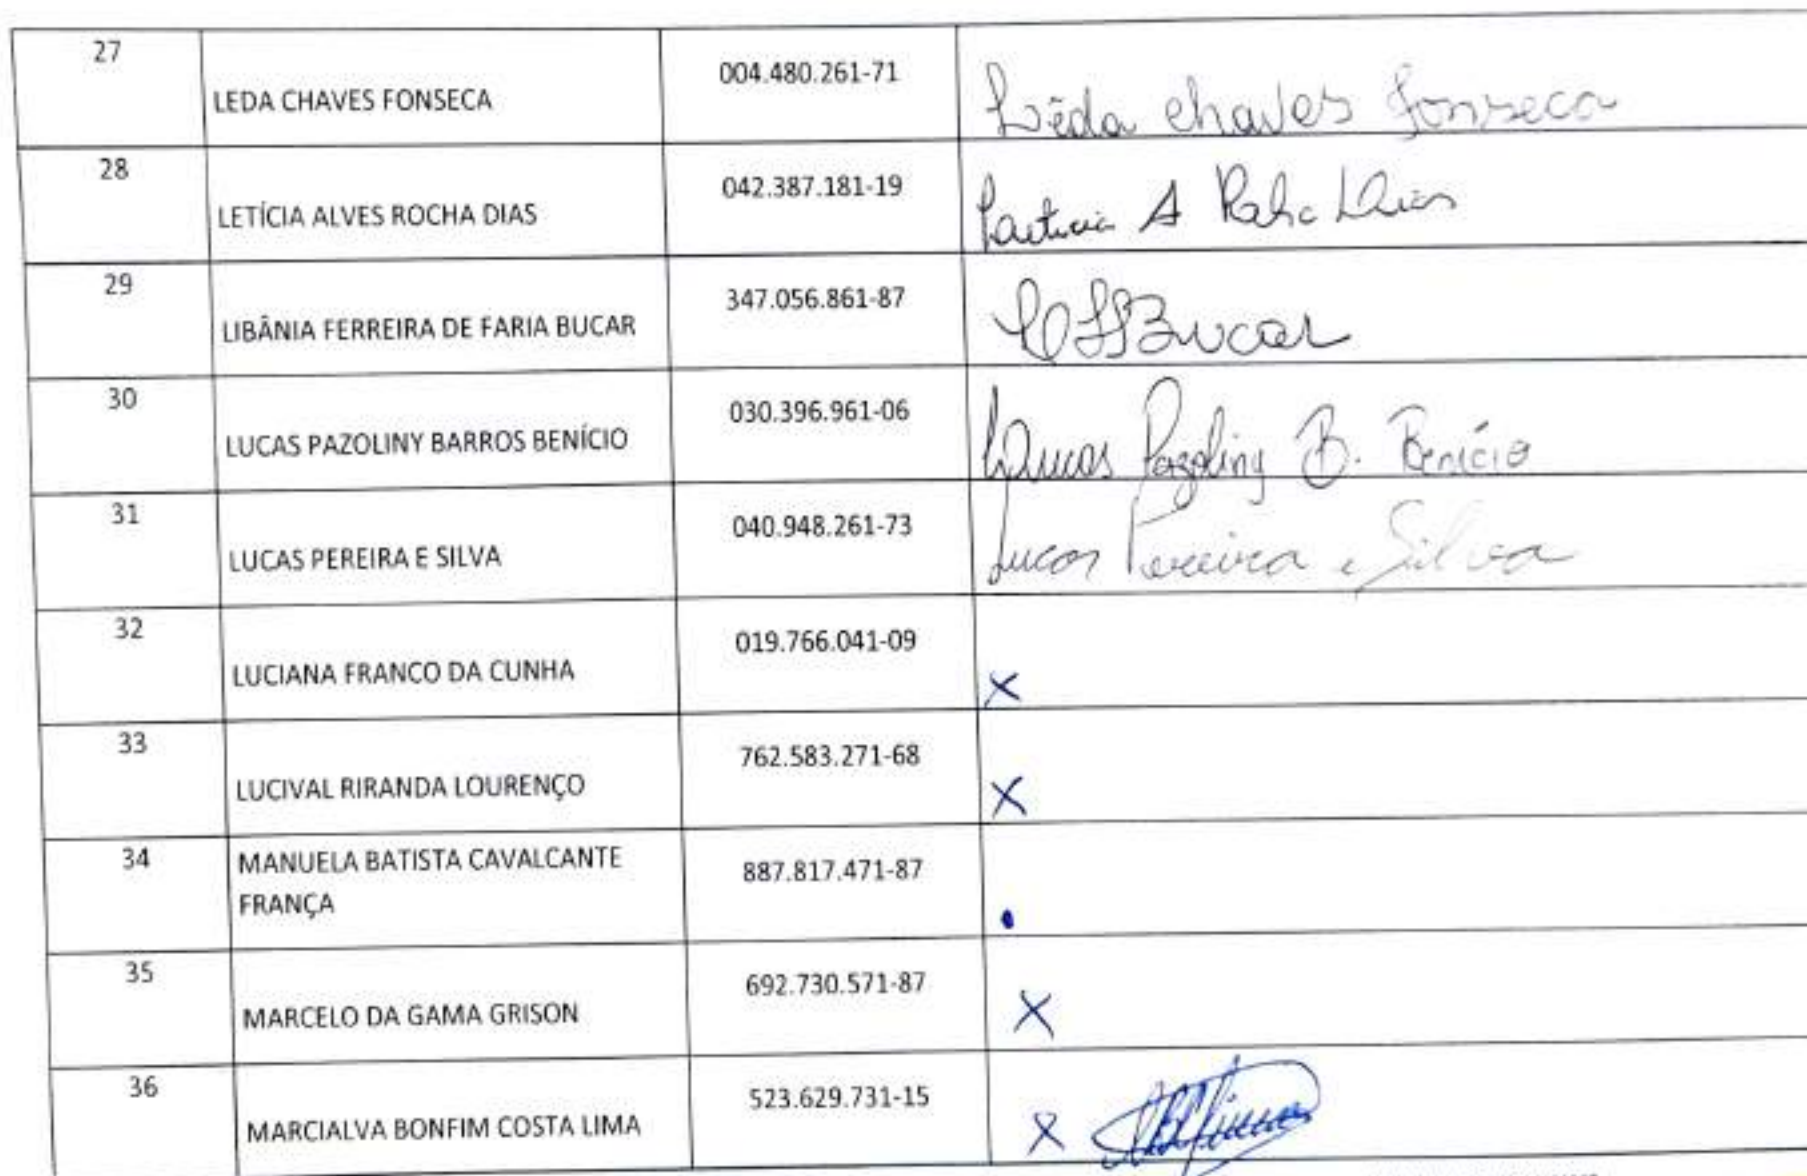 27 LEDA CHAVES FONSECA 004.480.261-71 Lêda Chaves Fonseca
28 LETÍCIA ALVES ROCHA DIAS 042.387.181-19 A Rocha Dias
29 LIBÂNIA FERREIRA DE FARIA BUCAR 347.056.861-87 Bucar
30 LUCAS PAZOLINY BARROS BENÍCIO 030.396.961-06 Lucas Pazoliny B. Benício
31 LUCAS PEREIRA E SILVA 040.948.261-73 Lucas Pereira e Silva
32 LUCIANA FRANCO DA CUNHA 019.766.041-09 X
33 LUCIVAL RIRANDA LOURENÇO 762.583.271-68 X
34 MANUELA BATISTA CAVALCANTE 887.817.471-87
FRANÇA
35 MARCELO DA GAMA GRISON 692.730.571-87 X
36 MARCIALVA BONFIM COSTA LIMA 523.629.731-15 X